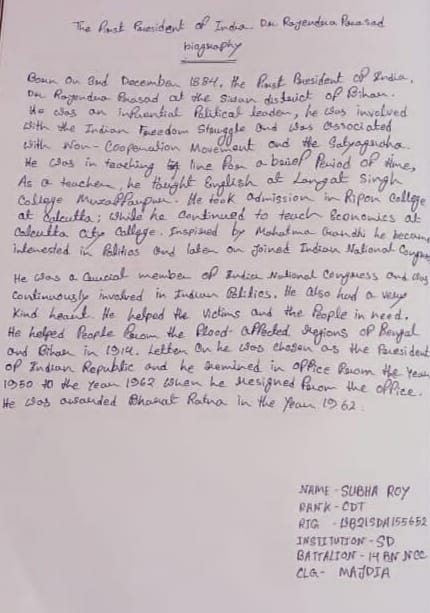 The First President of India Dr Rajendra Prasad
biography
Born on 3rd December 1884, the First President of India,
Dr Rajendra Prasad at the Siwan district of Bihar.
He was an influential Political leader, he was involved
with the Indian Freedom Struggle and was associated
with Non-Cooperation Movement and the Satyagraha.
He was in teaching line for a brief Period of time,
As a teacher, he taught English at Langat Singh
College Muzaffarpur. He took admission in Ripon College
at Calcutta; while he continued to teach Economics at
Calcutta City College. Inspired by Mahatma Gandhi he became
interested in Politics and later on Joined Indian National Congress
He was a Crucial member of India National Congress and was
continuously involved in Indian Politics. He also had a very
Kind heart. He helped the Victims and the People in need.
He helped People from the Flood-affected regions of Bengal
and Bihar in 1914. Letter On he was chosen as the President
of Indian Republic and he remined in office From the Year
1950 to the Year 1962 when he resigned From the office.
He was awarded Bharat Ratna in the Year 1962.
NAME - SUBHA ROY
RANK - CDT
INSTITUTION - SD
BATTALION - 14 BN NCC
CLG - MAJDIA